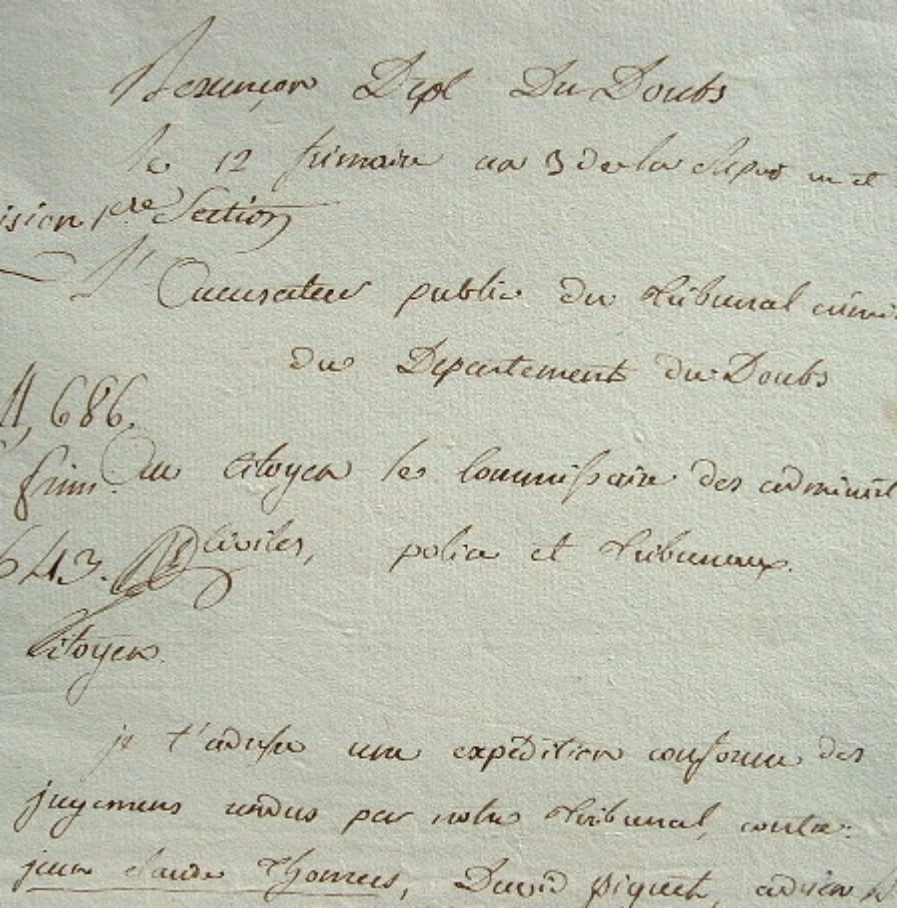 Besançon Dept Du Doubs
le 12 frimaire an 3 de la Repub un et
ision 1ere Section
L'Accusateur public du tribunal crimi
du Departement du Doubs
686.
frim. Au Citoyen le Commissaire des administ
643. civiles, police et tribunaux.
Citoyen.
je t'adresse une expédition conforme des
jugemens rendus par notre tribunal, contre:
jean claude Thomas, David piquet, adrien